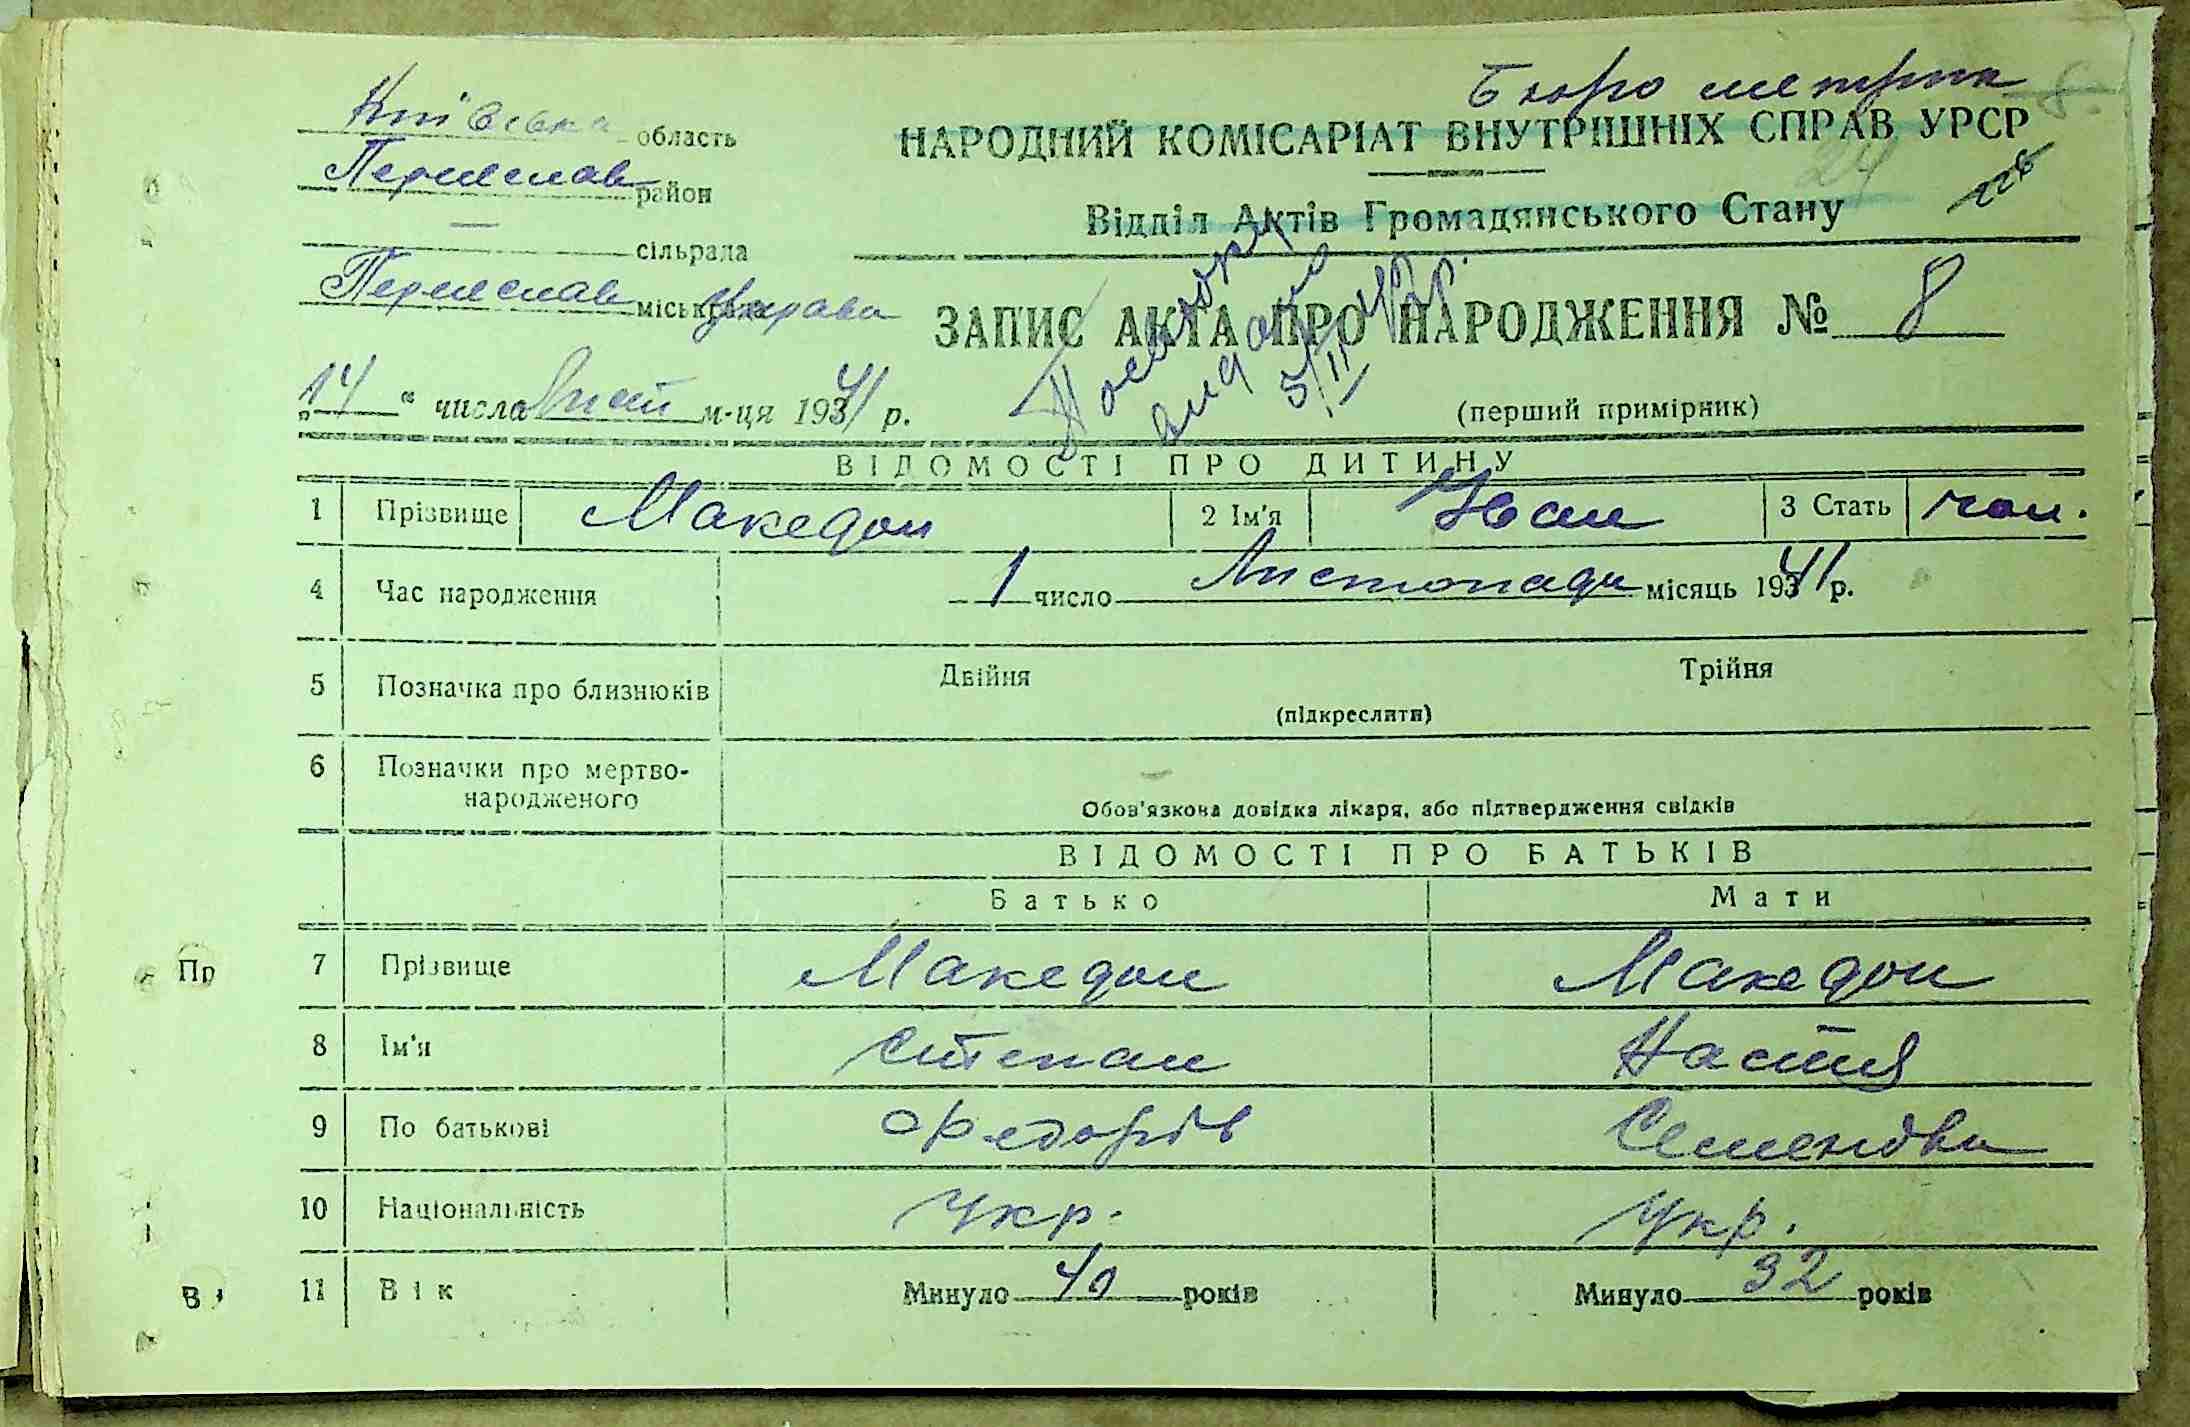 Бюро метрик 8.
Київська область
НАРОДНИЙ КОМІСАРІАТ ВНУТРІШНІХ СПРАВ УРСР
Переяслав район
24
226
Відділ Актів Громадянського Стану
— сільрада
Переяслав міськрада Управа
ЗАПИС АКТА ПРО НАРОДЖЕННЯ № 8
„14“ числа лист м-ця 1941 р.
видано
5/II
(перший примірник)
ВІДОМОСТІ ПРО ДИТИНУ
1 Прізвище Македон 2 Ім'я Иван 3 Стать чол.
4 Час народження 1 число Листопада місяць 1941 р.
5 Позначка про близнюків Двійня Трійня
(підкреслити)
6 Позначки про мертво-
народженого
Обов'язкова довідка лікаря, або підтвердження свідків
ВІДОМОСТІ ПРО БАТЬКІВ
Батько Мати
Пр 7 Прізвище Македон Македон
8 Ім'я Степан Настя
9 По батькові Федорів Семенівна
10 Національність Укр. Укр.
В 11 Вік Минуло 40 років Минуло 32 років